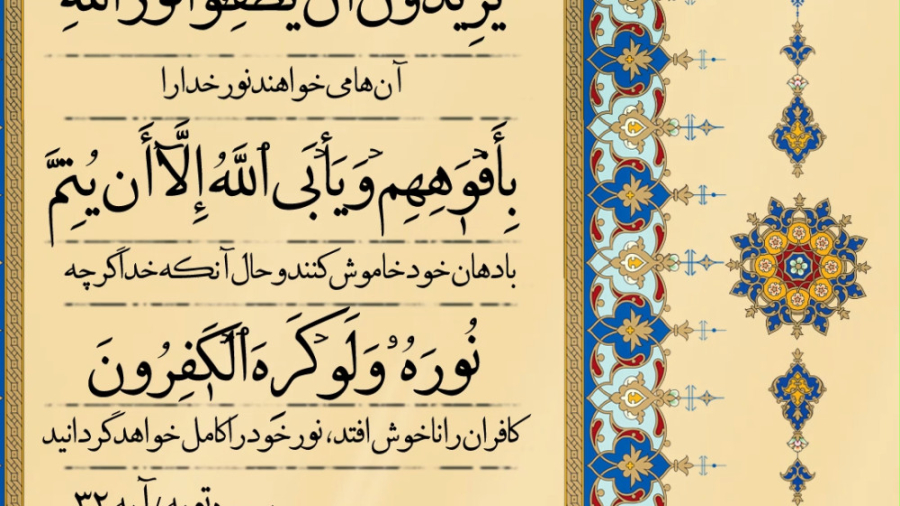 یُرِیدُونَ أَن یُطْفِـُٔوا۟ نُورَ ٱللَّهِ
آن‌ها می‌خواهند نور خدا را
بِأَفْوَٰهِهِمْ وَیَأْبَى ٱللَّهُ إِلَّآ أَن یُتِمَّ
با دهان خود خاموش کنند و حال آنکه خدا گرچه
نُورَهُۥ وَلَوْ كَرِهَ ٱلْكَٰفِرُونَ
کافران را ناخوش افتد، نور خود را کامل خواهد گردانید
توبه / آیه ۳۲